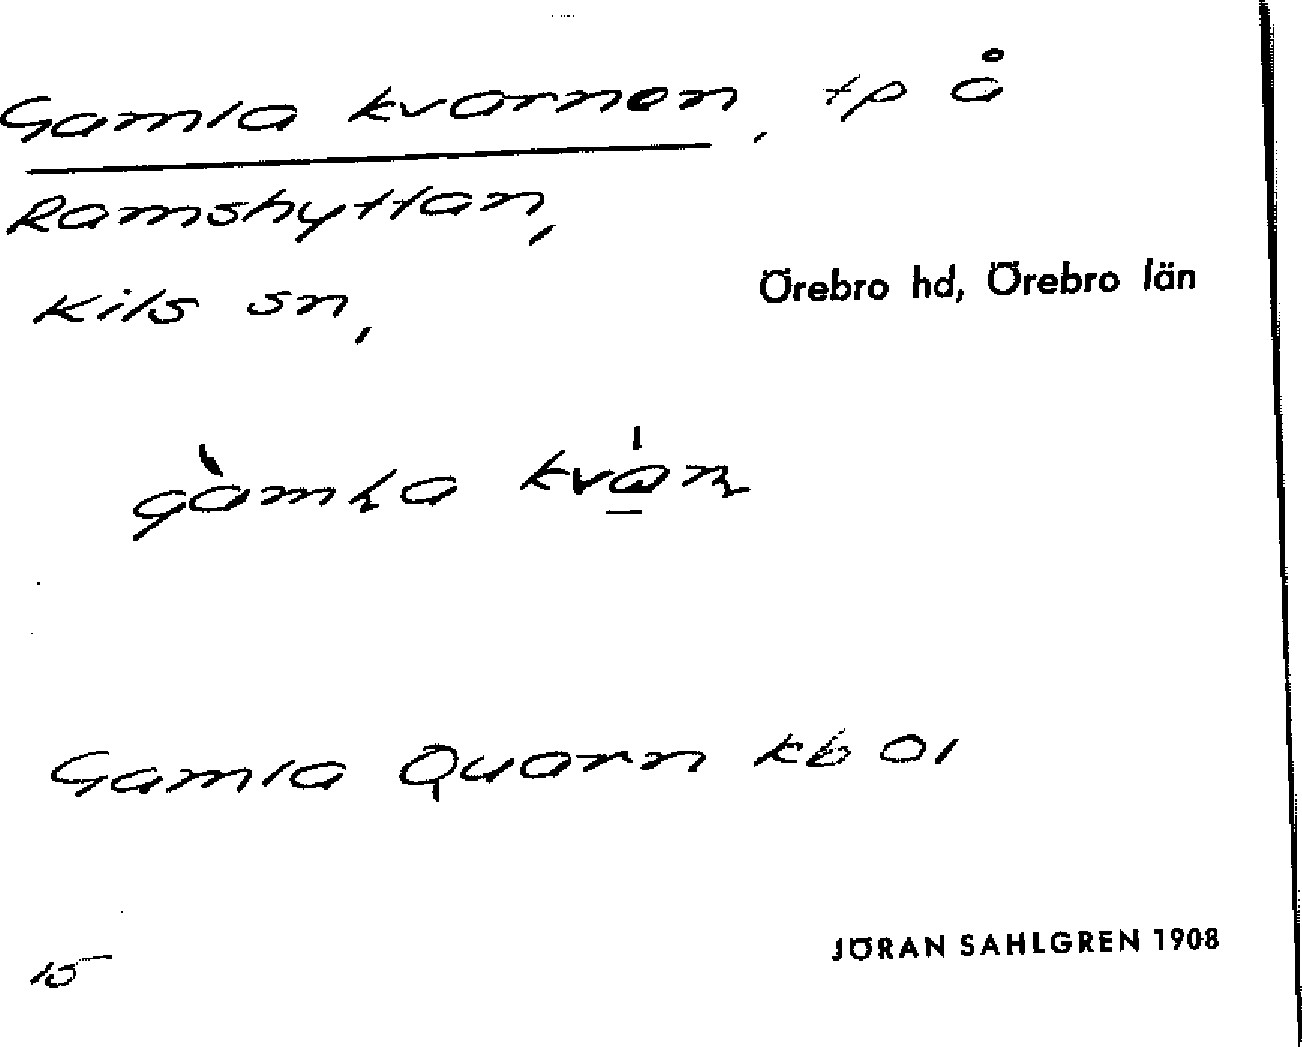 Gamla kvarnen, tp å
Ramshyttan,
Kils sn,
Örebro hd, Örebro län
gàmła kván
Gamla Quarn kb 01
15
JÖRAN SAHLGREN 1908